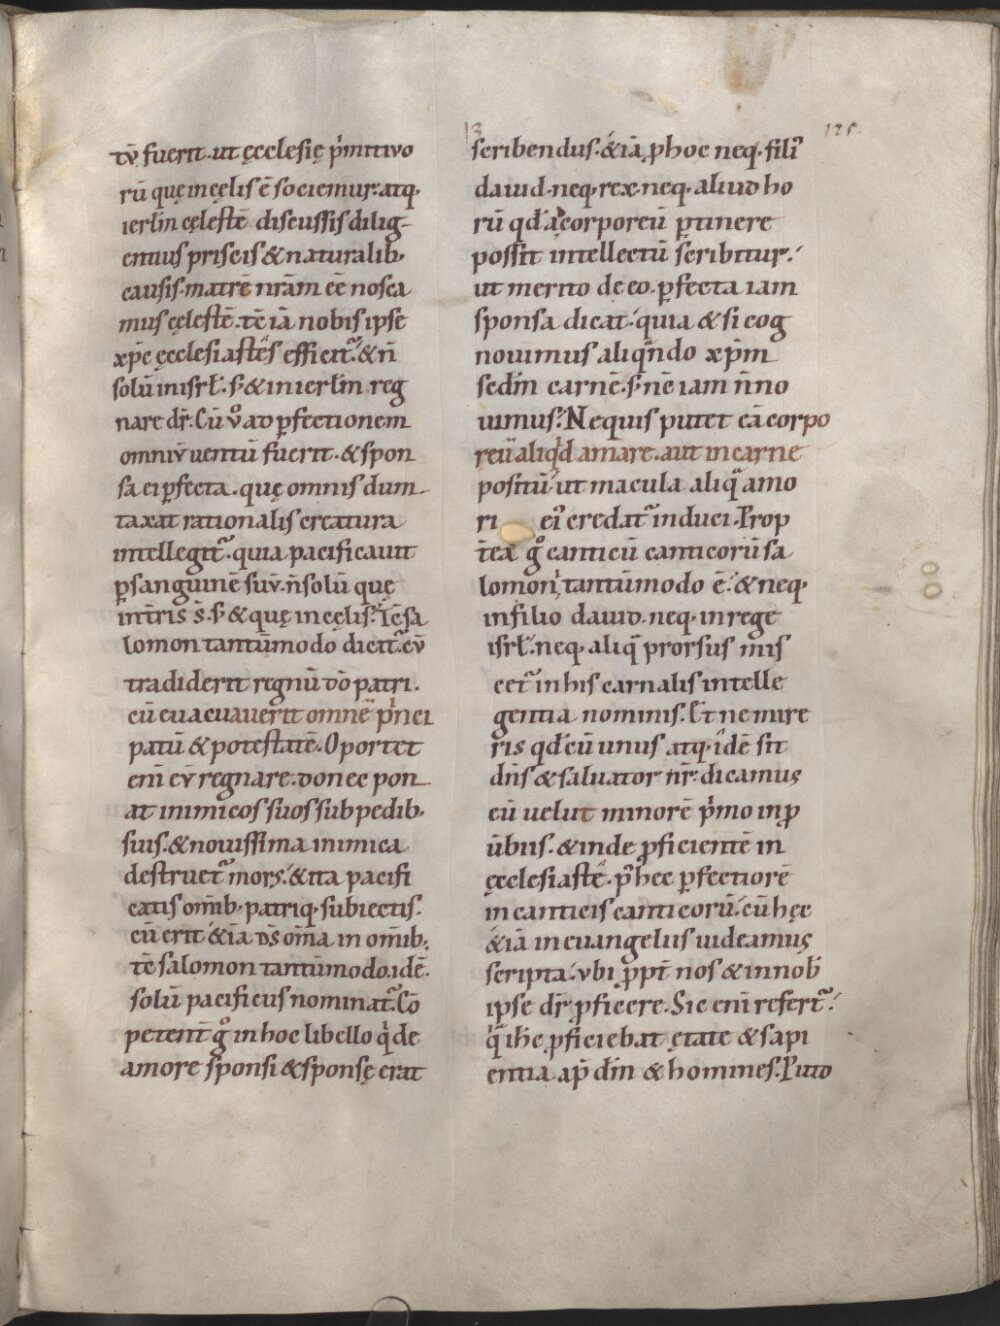 13
125.
tū fuerit. ut ęcclesię p̓mitivo
rū quę in cęlis ē sociemur. atq;
ierl̄m cęlestē discussis dilig-
entius priscis & naturalib;
causis. matrē nr̄am eē nosca
mus cęlestē. tē iā nobis ipse
xp̄c ęcclesiastēs efficit᷑. & n̄
solū in isrł. s; & in ierl̄m reg
nare dr̄. Cū v̊ ad ꝑfectionem
omniū uentū fuerit. & spon
sa ei ꝑfecta. quę omnis dum
taxat rationalis creatura
intellegit᷑. quia pacificauit
ꝑ sanguinē suū. n̄ solū quę
in tr̄is s̄. s; & quę in cęlis. Tē sa
lomon tantūmodo dicit᷑. cū
tradiderit regnū dō patri.
cū euacuauerit omnē p̓nci
patū & potestatē. Oportet
eni̅ eū regnare. donec pon
at inimicos suos sub pedib;
suis. & nouissima inimica
destruet᷑ mors. & ita pacifi
catis om̄ib; patriq; subiectis.
cū erit & iā d̄s om̄a in om̄ib;
tē salomon tantūmodo. idē.
solū pacificus nominat᷑. Cō
petent̄ g̊ in hoc libello q̓ de
amore sponsi & sponsę erat
scribendus. & iā ꝑ hoc neq; filiꝰ
dauid. neq; rex. neq; aliud ho
rū qd̄ ad corporeū ꝑtinere
possit intellectū scribitur.
ut merito de eo. ꝑfecta iam
sponsa dicat. quia & si cog
nouimus aliqn̄do xp̄m
sed̄m carnē. s; nē iam n̄ no
uimus. Ne quis putet eā corpo
reū aliqd̓ amare. aut in carne
positū. ut macula aliqͣ amo
ri eiꝰ credat᷑ induci. Prop
t̄ea g̊ canticū canticorū sa
lomoniꝰ tantūmodo ē. & neq;
in filio dauid. neq; in rege
isrł. neq; aliqͣ prorsus mis
cet᷑ in his carnalis intelle
gentia nominis. Et ne mire
ris qd̄ cū unus atq; idē sit
dn̄s & saluator nr̄. dicamus
eū uelut minorē p̓mo in ꝓ
ūbiis. & inde ꝓficientē in
ęcclesiastē. p̓ hec ꝑfectiorē
in canticis canticorū. cū hęc
& iā in euangeliis uideamus
scripta. ubi ꝓpt̄ nos & in nob̄
ipse dr̄ ꝓficere. Sic eni̅ refert᷑.
qͣ ih̄c ꝓficiebat ętate & sapi
entia ap̄ d̄m & homines. Puto